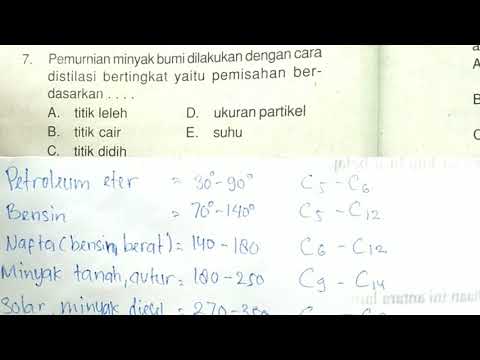 7. Pemurnian minyak bumi dilakukan dengan cara
distilasi bertingkat yaitu pemisahan ber-
dasarkan . . . .
A. titik leleh D. ukuran partikel
B. titik cair E. suhu
C. titik didih
Petroleum eter = 30° - 90° C5 - C6
Bensin = 70° - 140° C5 - C12
Nafta (bensin berat) = 140 - 180 C6 - C12
Minyak tanah, avtur = 180 - 250 C9 - C14
Solar, minyak diesel = 270 -